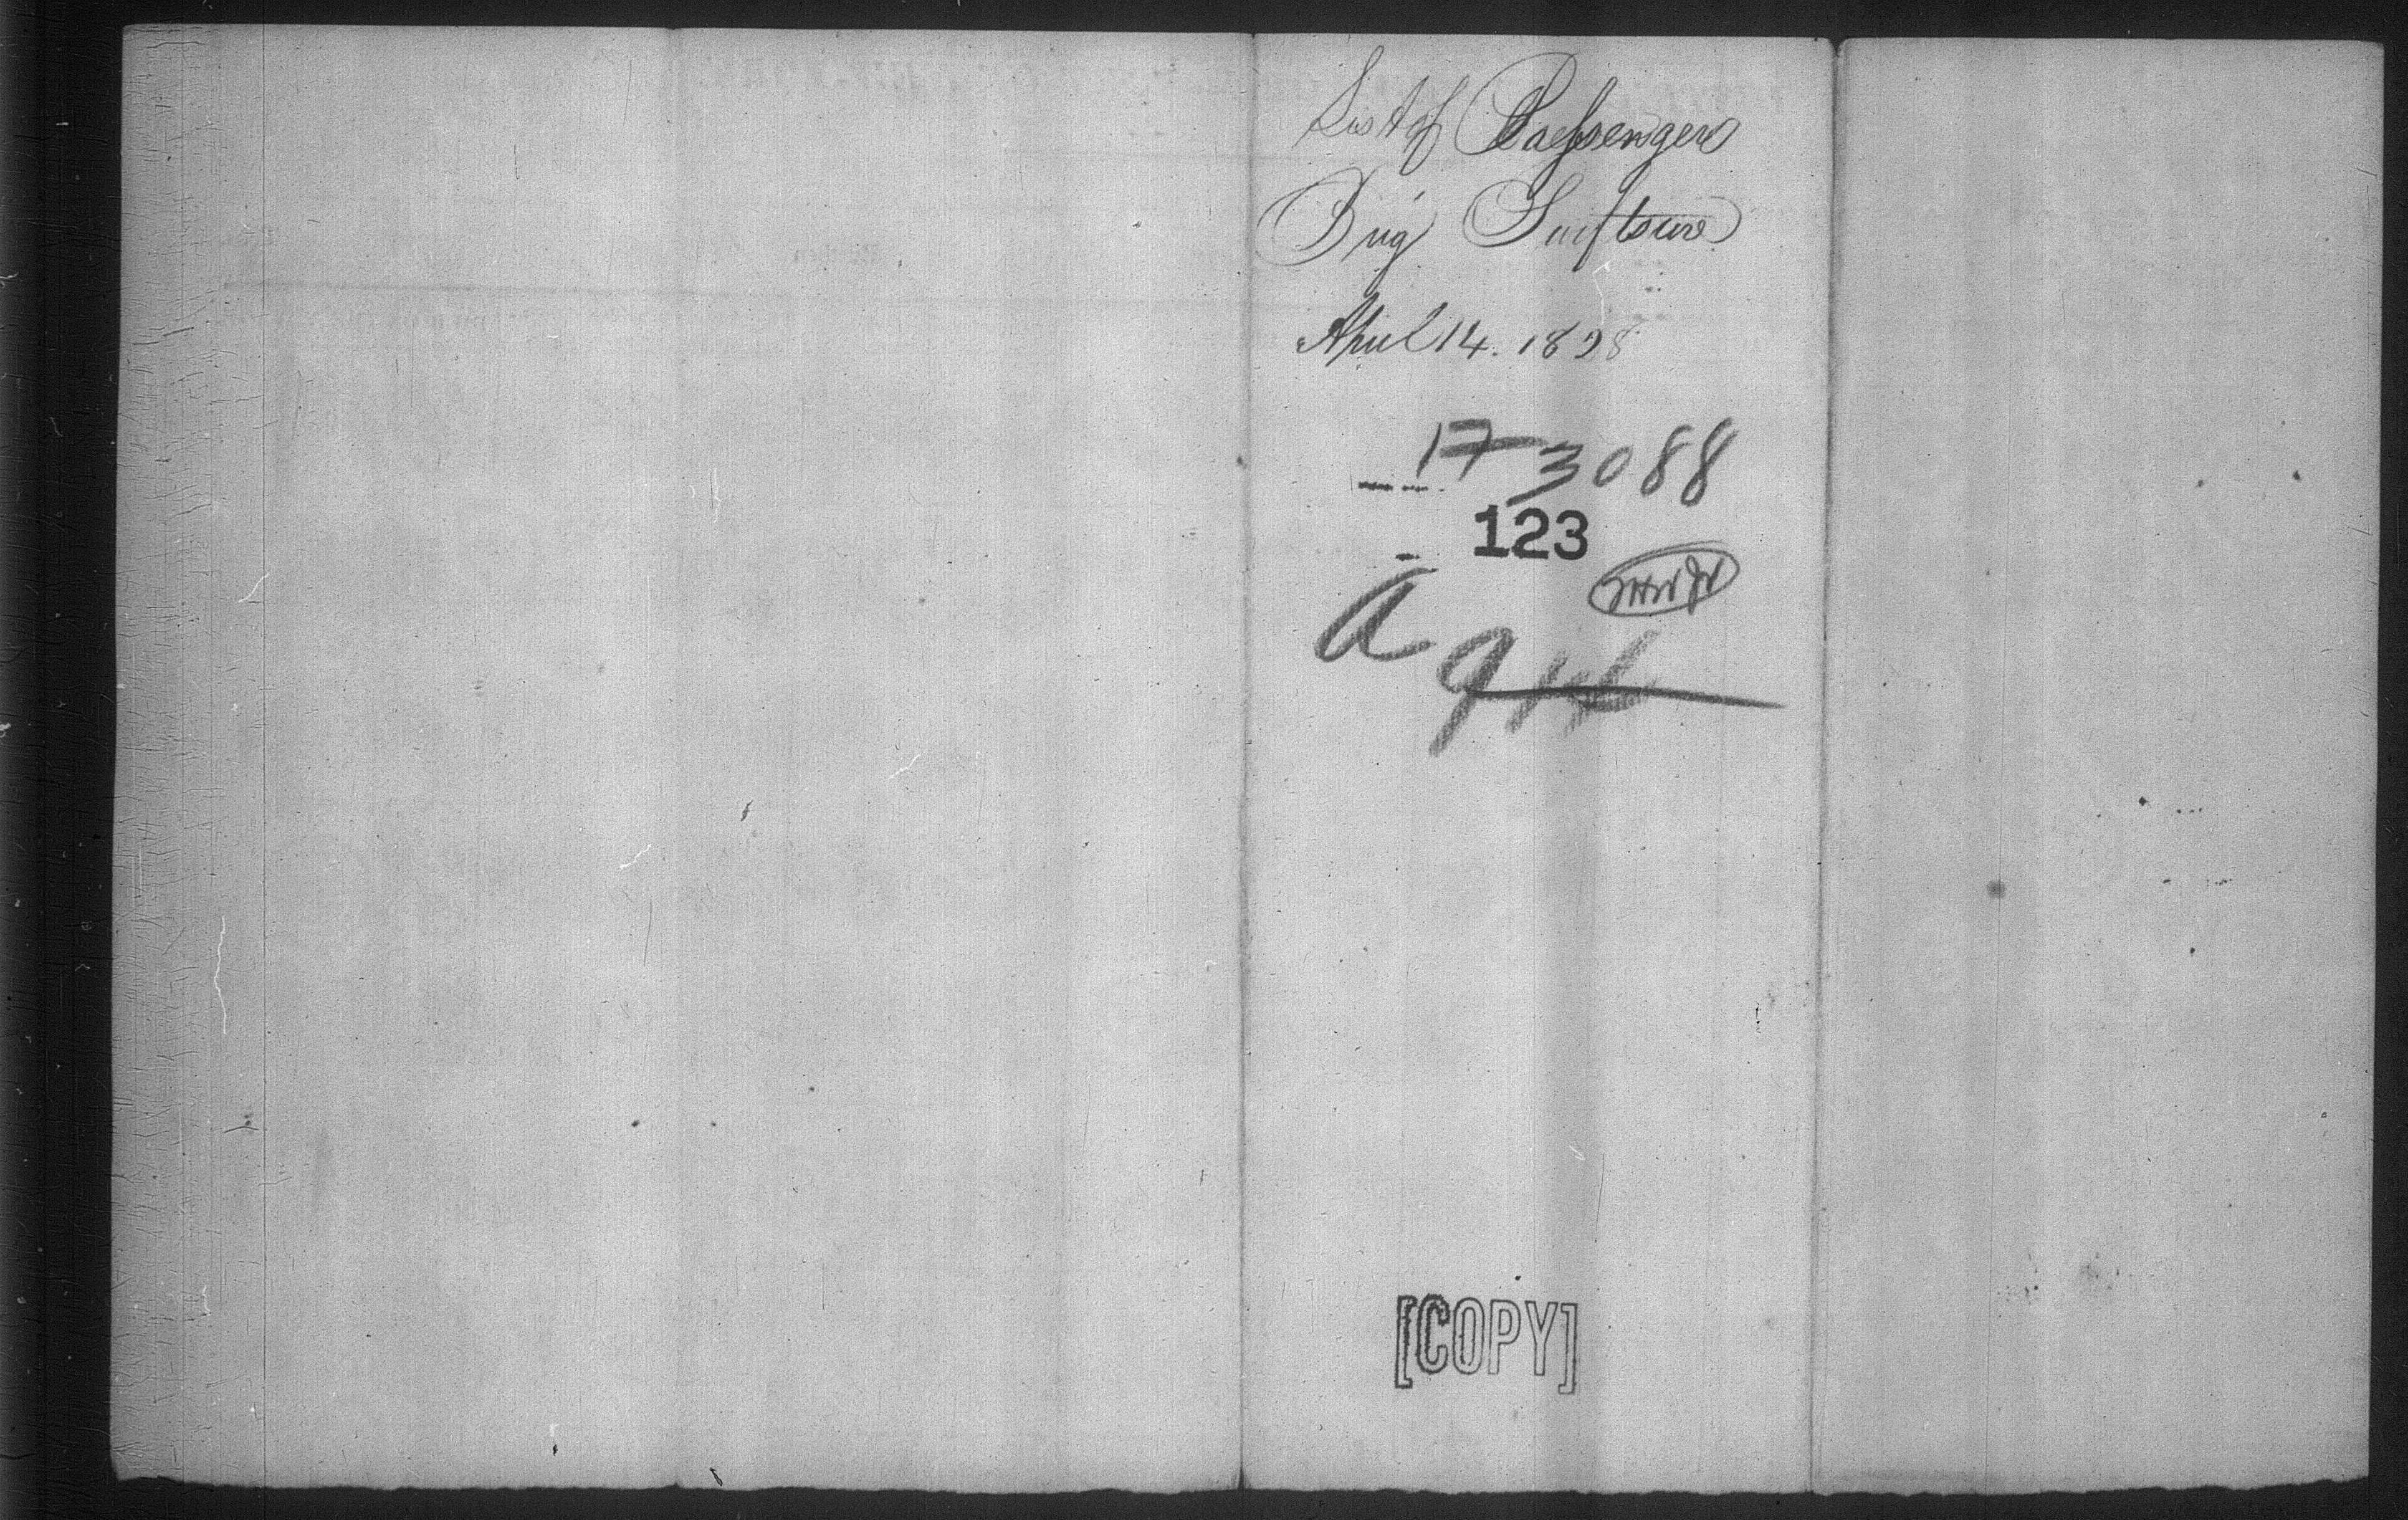 List of Passengers
Brig Swiftsure
April 14. 1898
17 3088
123
A 914
[COPY]